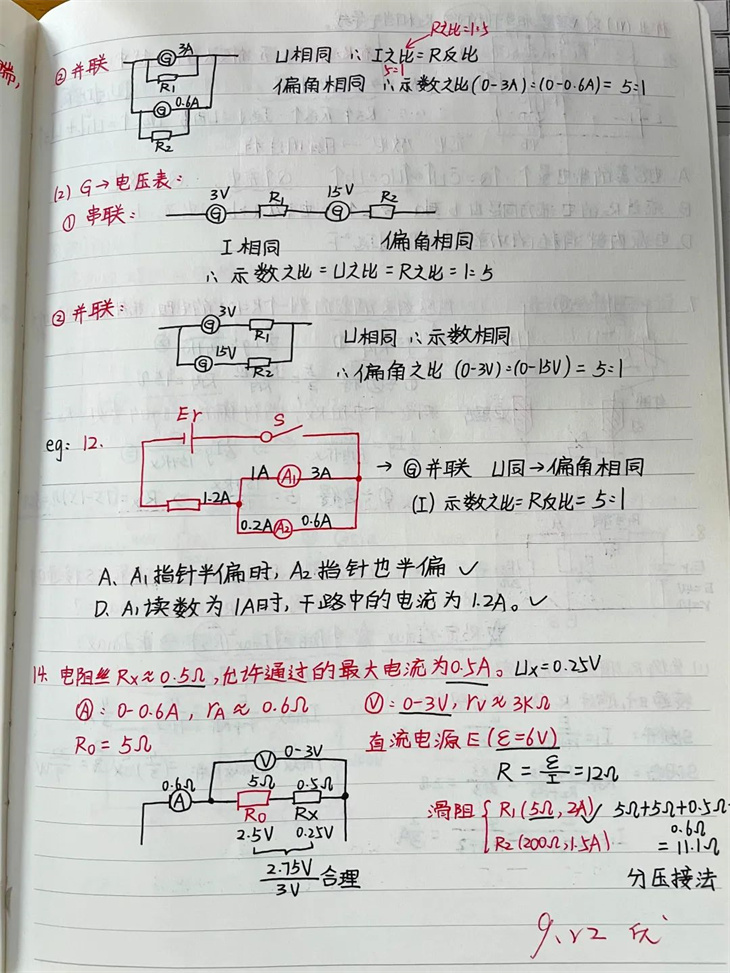 端,
R之比=1:5
② 并联
3A
G
R1
0.6A
G
R2
U相同 ∴ I之比=R反比
5:1
偏角相同 ∴示数之比(0-3A):(0-0.6A)= 5:1
(2) G→电压表:
① 串联:
3V
R1
15V
R2
G
G
I 相同
偏角相同
∴ 示数之比=U之比=R之比=1:5
② 并联:
3V
G
R1
15V
G
R2
U相同 ∴示数相同
∴偏角之比 (0-3V):(0-15V) = 5:1
eg: 12.
Er
S
1A
A1
3A
1.2A
0.2A
A2
0.6A
→ G并联 U同→偏角相同
(I) 示数之比=R反比=5:1
A. A1指针半偏时, A2指针也半偏 ✓
D. A1读数为1A时, 干路中的电流为1.2A。✓
14. 电阻丝 Rx≈0.5Ω, 允许通过的最大电流为0.5A。Ux=0.25V
A: 0-0.6A, rA≈0.6Ω
V: 0-3V, rV≈3KΩ
R0=5Ω
直流电源E(ε=6V)
R=ε/I=12Ω
V
0-3V
0.6Ω
A
5Ω
0.5Ω
R0
Rx
2.5V
0.25V
2.75V
3V
合理
滑阻
R1(5Ω, 2A) ✓
R2(200Ω, 1.5A)
5Ω+5Ω+0.5Ω+
0.6Ω
=11.1Ω
分压接法